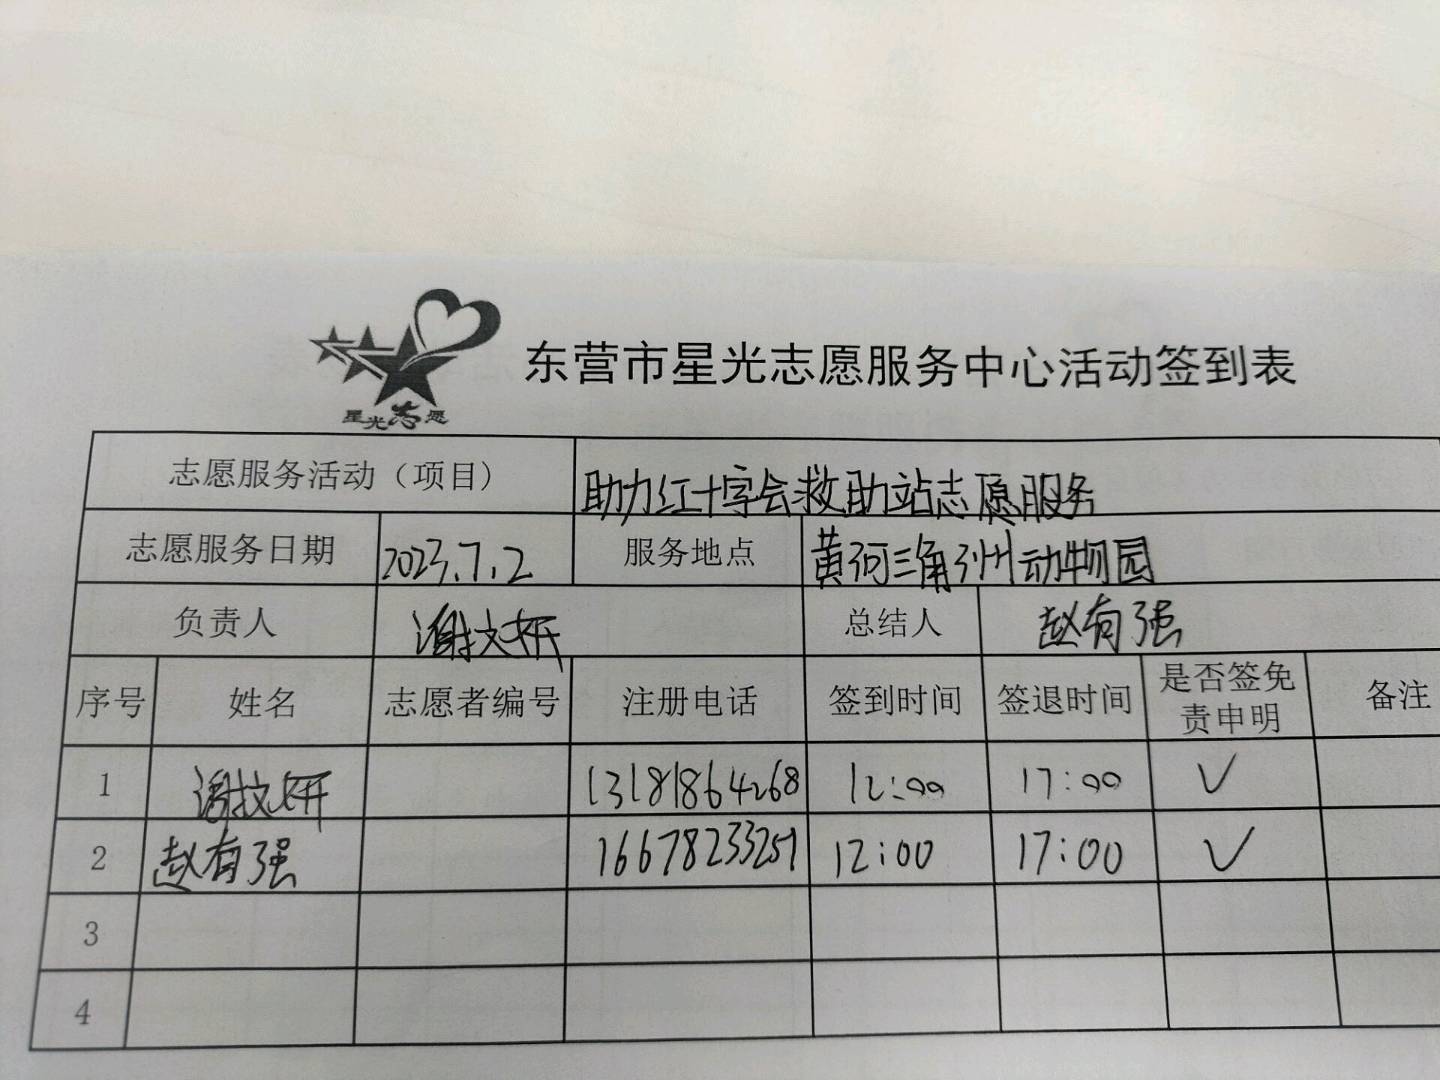 星光志愿
东营市星光志愿服务中心活动签到表
志愿服务活动（项目） 助力红十字会救助站志愿服务
志愿服务日期 2023.7.2 服务地点 黄河三角洲动物园
负责人 谢文妍 总结人 赵有强
序号 姓名 志愿者编号 注册电话 签到时间 签退时间 是否签免责申明 备注
1 谢文妍 13181864268 12:00 17:00 ✓
2 赵有强 16678233251 12:00 17:00 ✓
3
4